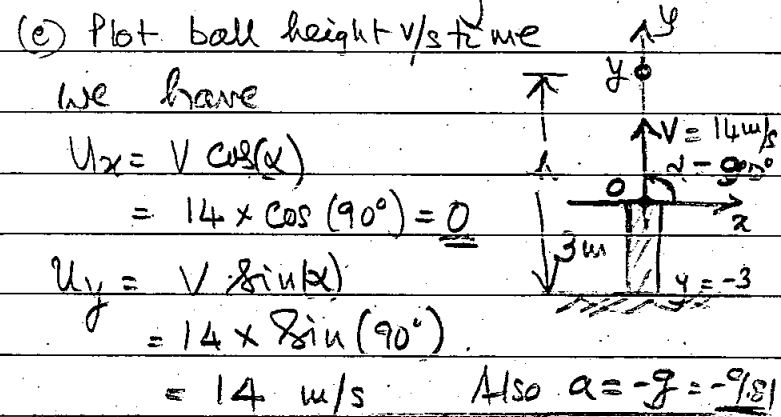 (e) Plot ball height v/s time
We have
Ux = V cos(α)
= 14 × cos (90°) = 0
Uy = V sin(α)
= 14 × Sin (90°).
= 14 m/s Also a = -g = -9.81
y
y
V = 14 m/s
α = 90°
h
O
x
3m
y = -3